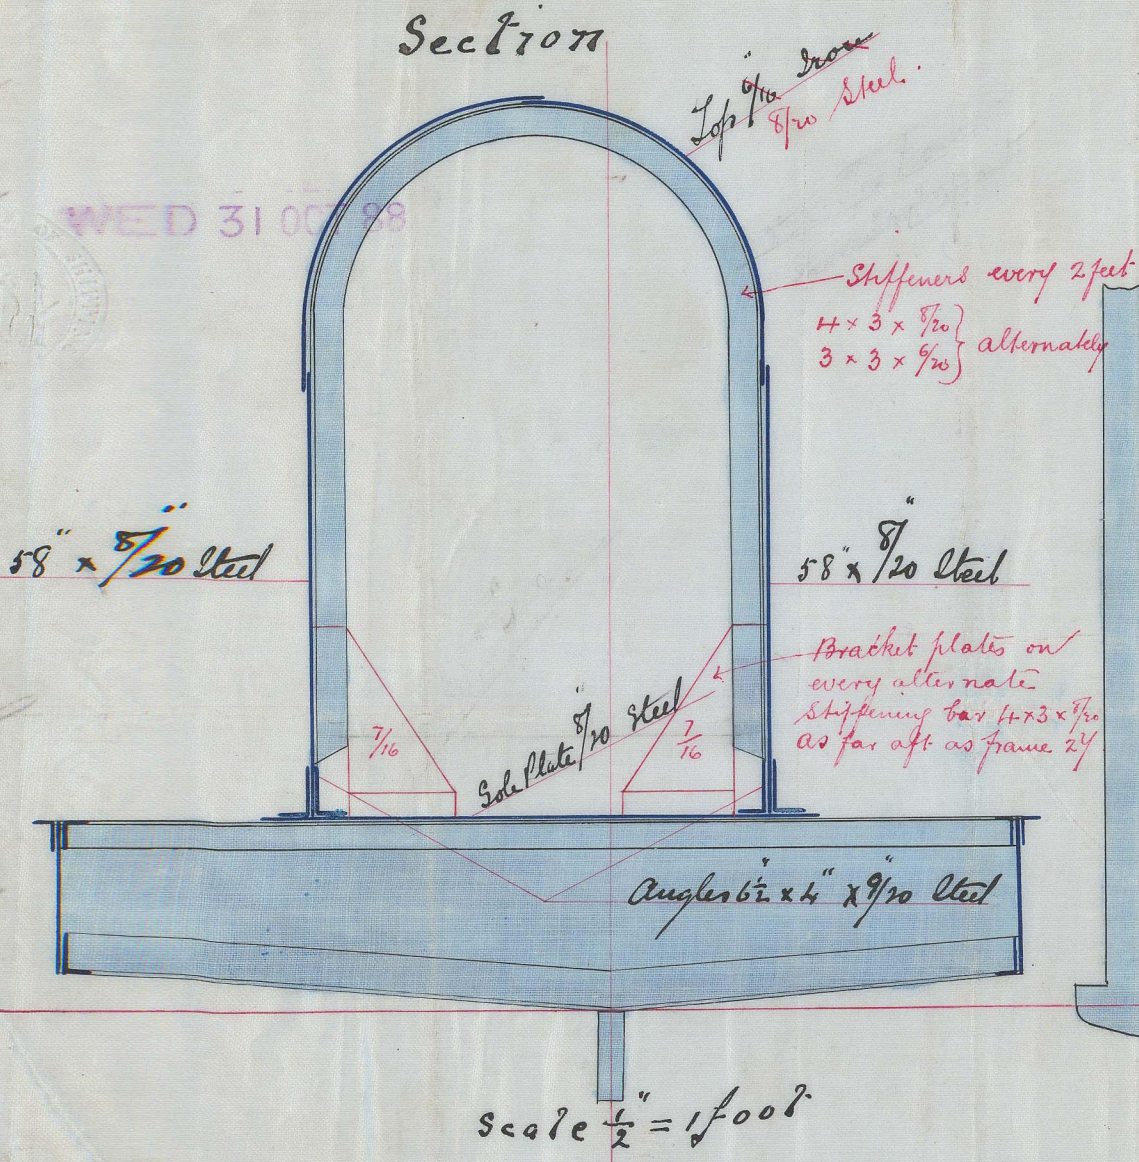 Section
Top 6/16" Iron
8/20 Steel.
WED 31 OCT 88
Stiffeners every 2 feet
4 × 3 × 8/20 } alternately
3 × 3 × 6/20 }
58" × 8/20" Steel
58" × 8/20" Steel
Bracket plates on
every alternate
stiffening bar 4×3×8/20
as far aft as frame 24
7/16
Sole Plate 8/20" Steel
7/16
Angles 6½" × 4" × 9/20" Steel
Scale ½" = 1 foot